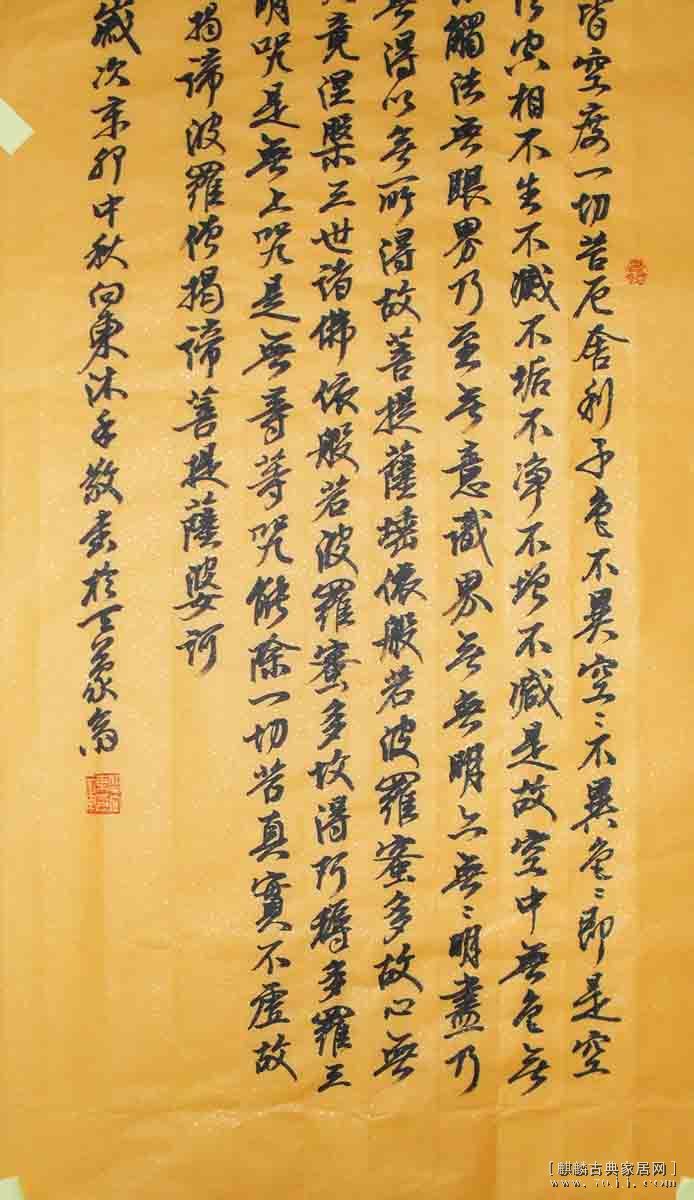 皆空度一切苦厄舍利子色不異空〻不異色〻即是空
法空相不生不滅不垢不淨不增不減是故空中無色無
觸法無眼界乃至無意識界無無明亦無〻明盡乃
無得以無所得故菩提薩埵依般若波羅蜜多故心無
究竟涅槃三世諸佛依般若波羅蜜多故得阿耨多羅三
明咒是無上咒是無等等咒能除一切苦真實不虛故
揭諦波羅僧揭諦菩提薩婆訶
歲次辛卯中秋向東沐手敬書於
[麒麟古典家居网]
www.7011.com